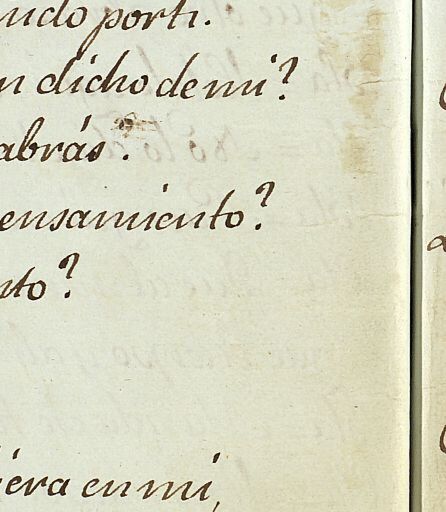 porti.
dicho de mi?
abrás.
ensamiento?
nto?
iera en mi,